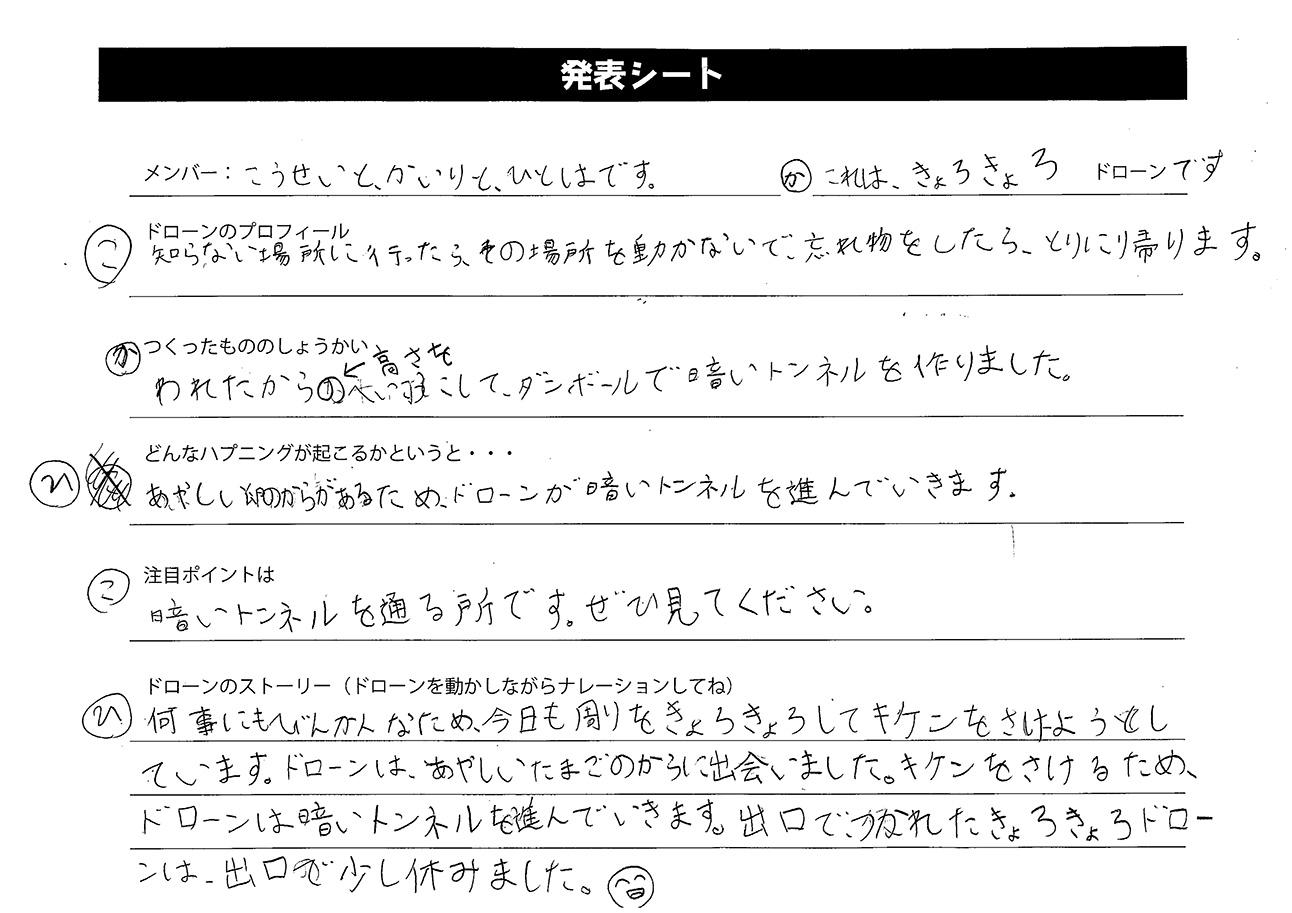 発表シート
メンバー：こうせいと、かいりと、ひとはです。 か これは、きょろきょろ ドローンです
ドローンのプロフィール
こ 知らない場所に行ったら、その場所を動かないで、忘れ物をしたら、とりにり帰ります。
か つくったもののしょうかい
高さを
われたからの こして、ダンボールで暗いトンネルを作りました。
どんなハプニングが起こるかというと・・・
ひ あやしい卵のからがあるため、ドローンが暗いトンネルを進んでいきます。
注目ポイントは
こ 暗いトンネルを通る所です。ぜひ見てください。
ドローンのストーリー（ドローンを動かしながらナレーションしてね）
ひ 何事にもびんかんなため、今日も周りをきょろきょろしてキケンをさけようとし
ています。ドローンは、あやしいたまごのからに出会いました。キケンをさけるため、
ドローンは暗いトンネルを進んでいきます。出口で疲れたきょろきょろドロー
ンは、出口で少し休みました。